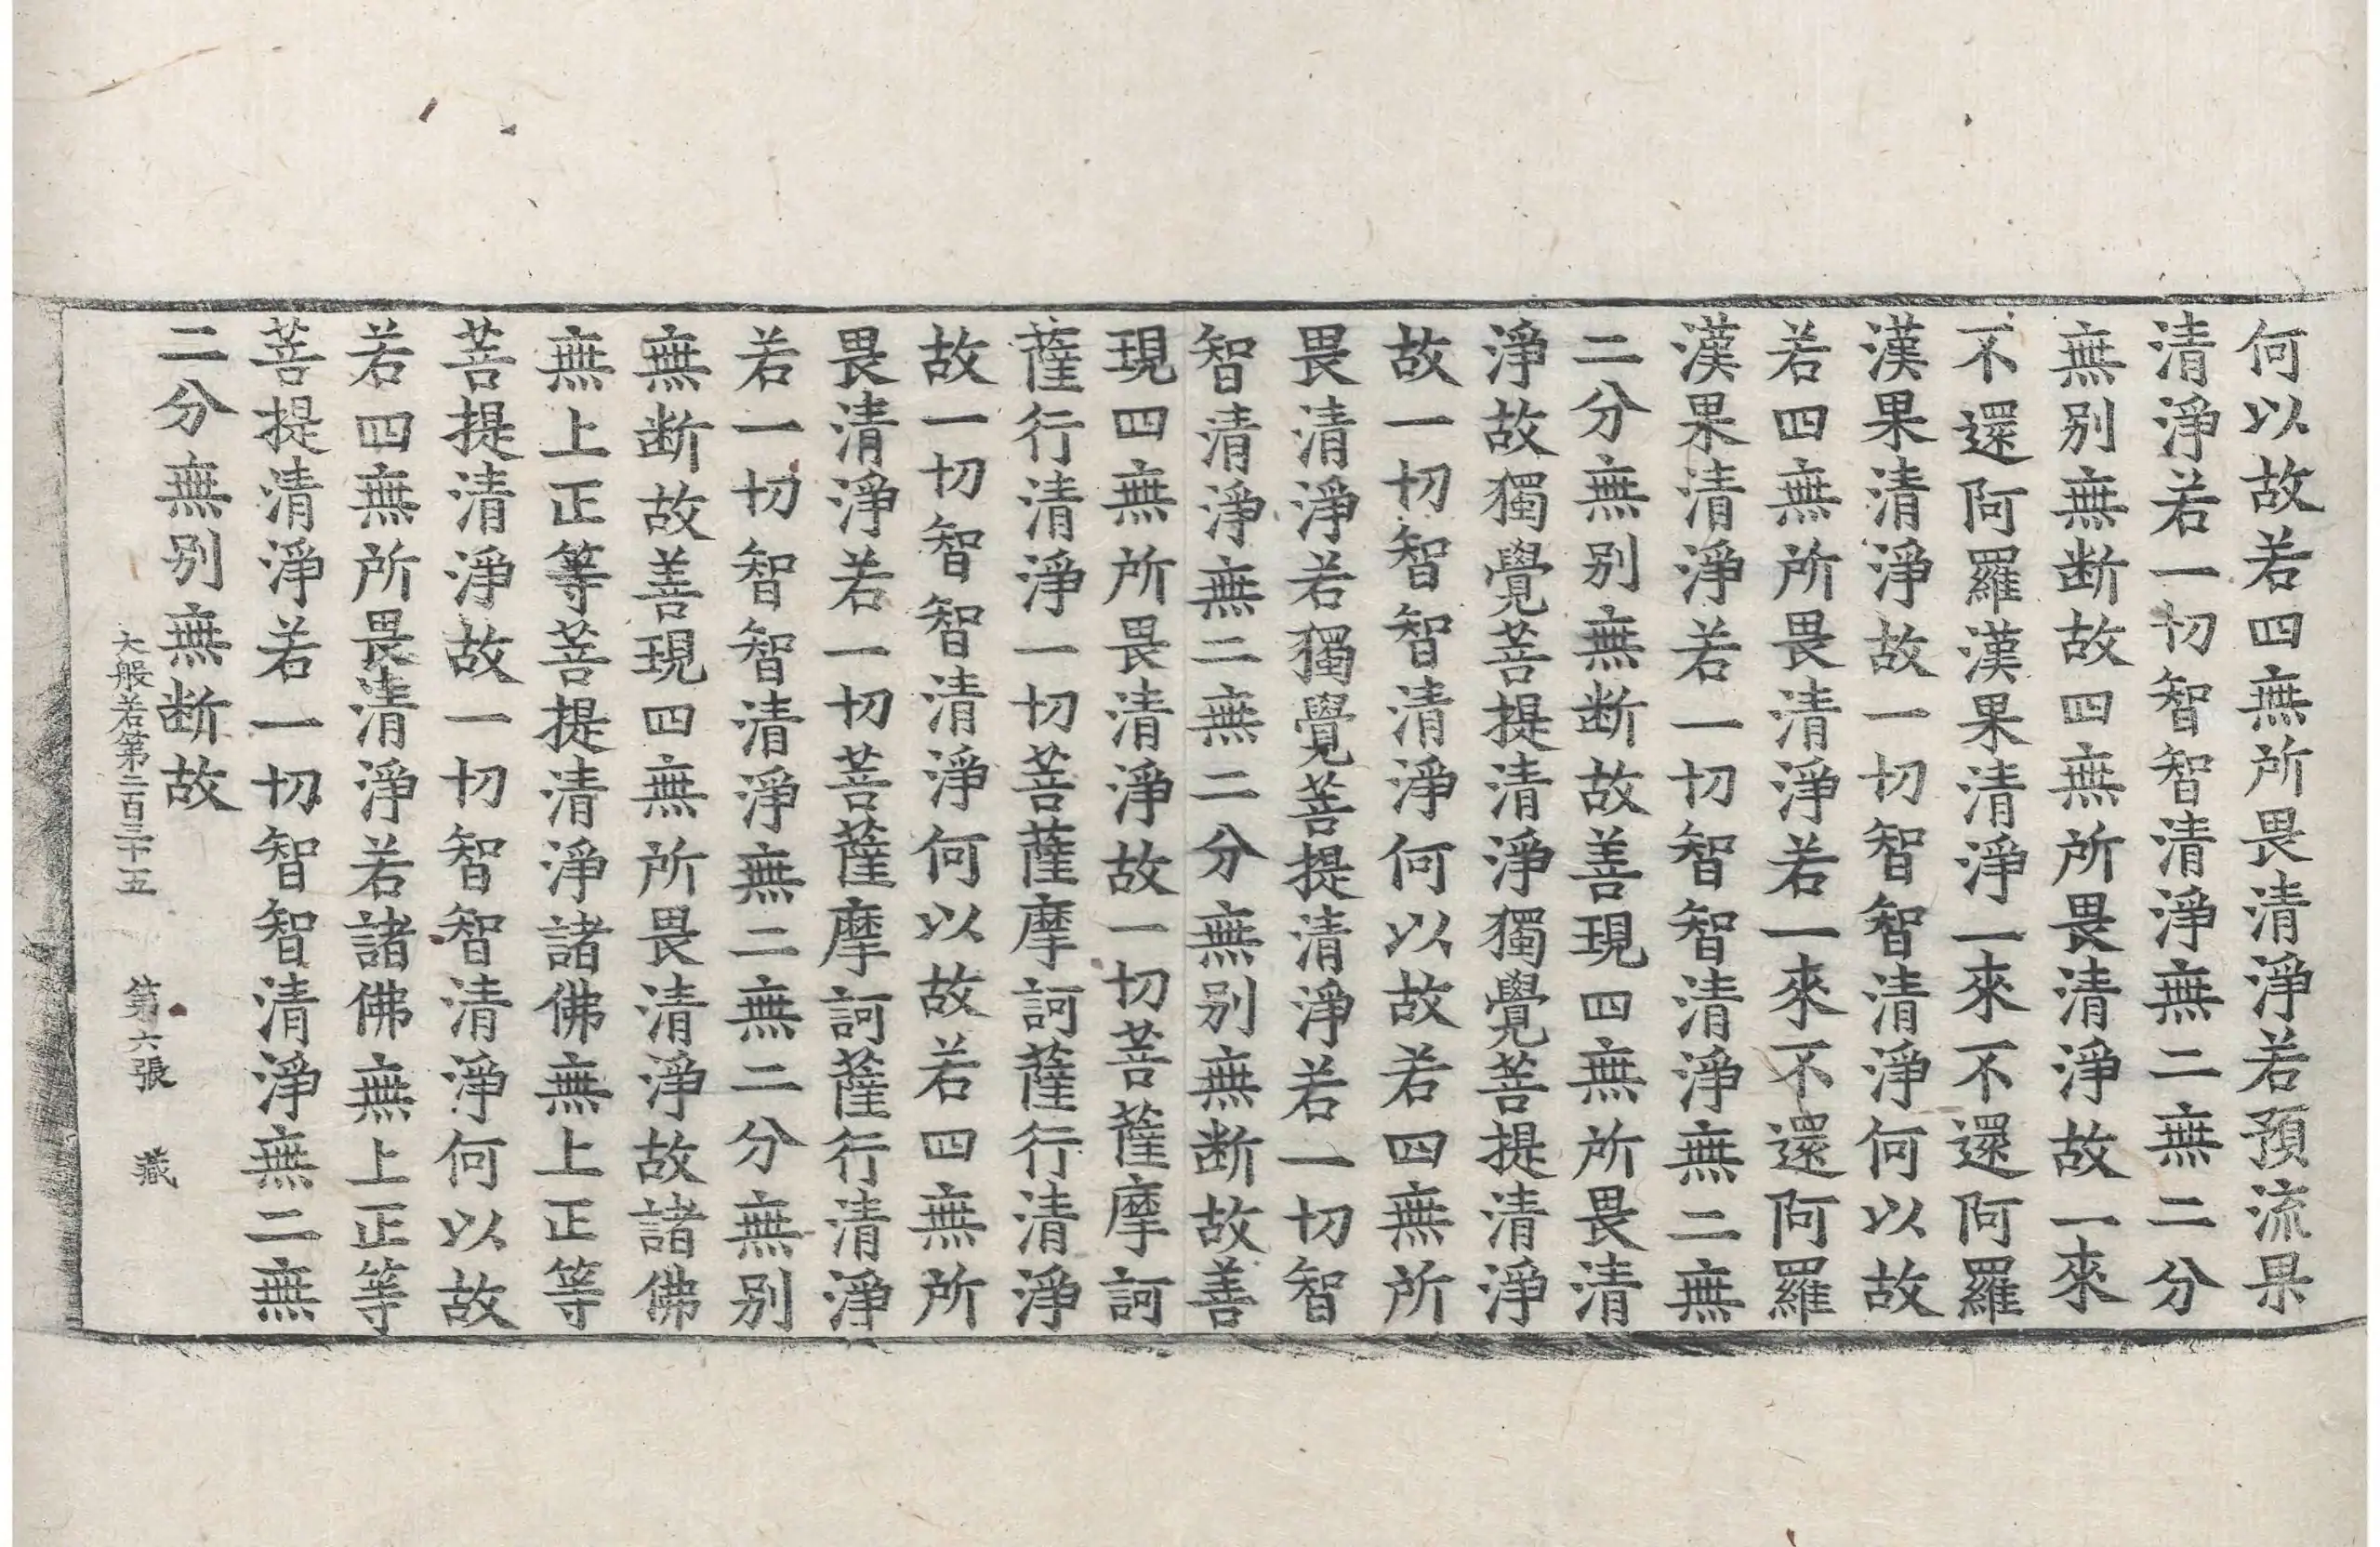 何以故若四無所畏清淨若預流果
清淨若一切智智清淨無二無二分
無别無断故四無所畏清淨故一來
不還阿羅漢果清淨一來不還阿羅
漢果清淨故一切智智清淨何以故
若四無所畏清淨若一來不還阿羅
漢果清淨若一切智智清淨無二無
二分無别無断故善現四無所畏清
淨故獨覺菩提清淨獨覺菩提清淨
故一切智智清淨何以故若四無所
畏清淨若獨覺菩提清淨若一切智
智清淨無二無二分無别無断故善
現四無所畏清淨故一切菩薩摩訶
薩行清淨一切菩薩摩訶薩行清淨
故一切智智清淨何以故若四無所
畏清淨若一切菩薩摩訶薩行清淨
若一切智智清淨無二無二分無别
無断故善現四無所畏清淨故諸佛
無上正等菩提清淨諸佛無上正等
菩提清淨故一切智智清淨何以故
若四無所畏清淨若諸佛無上正等
菩提清淨若一切智智清淨無二無
二分無别無断故
大般若第二百三十五 第六張 蔵